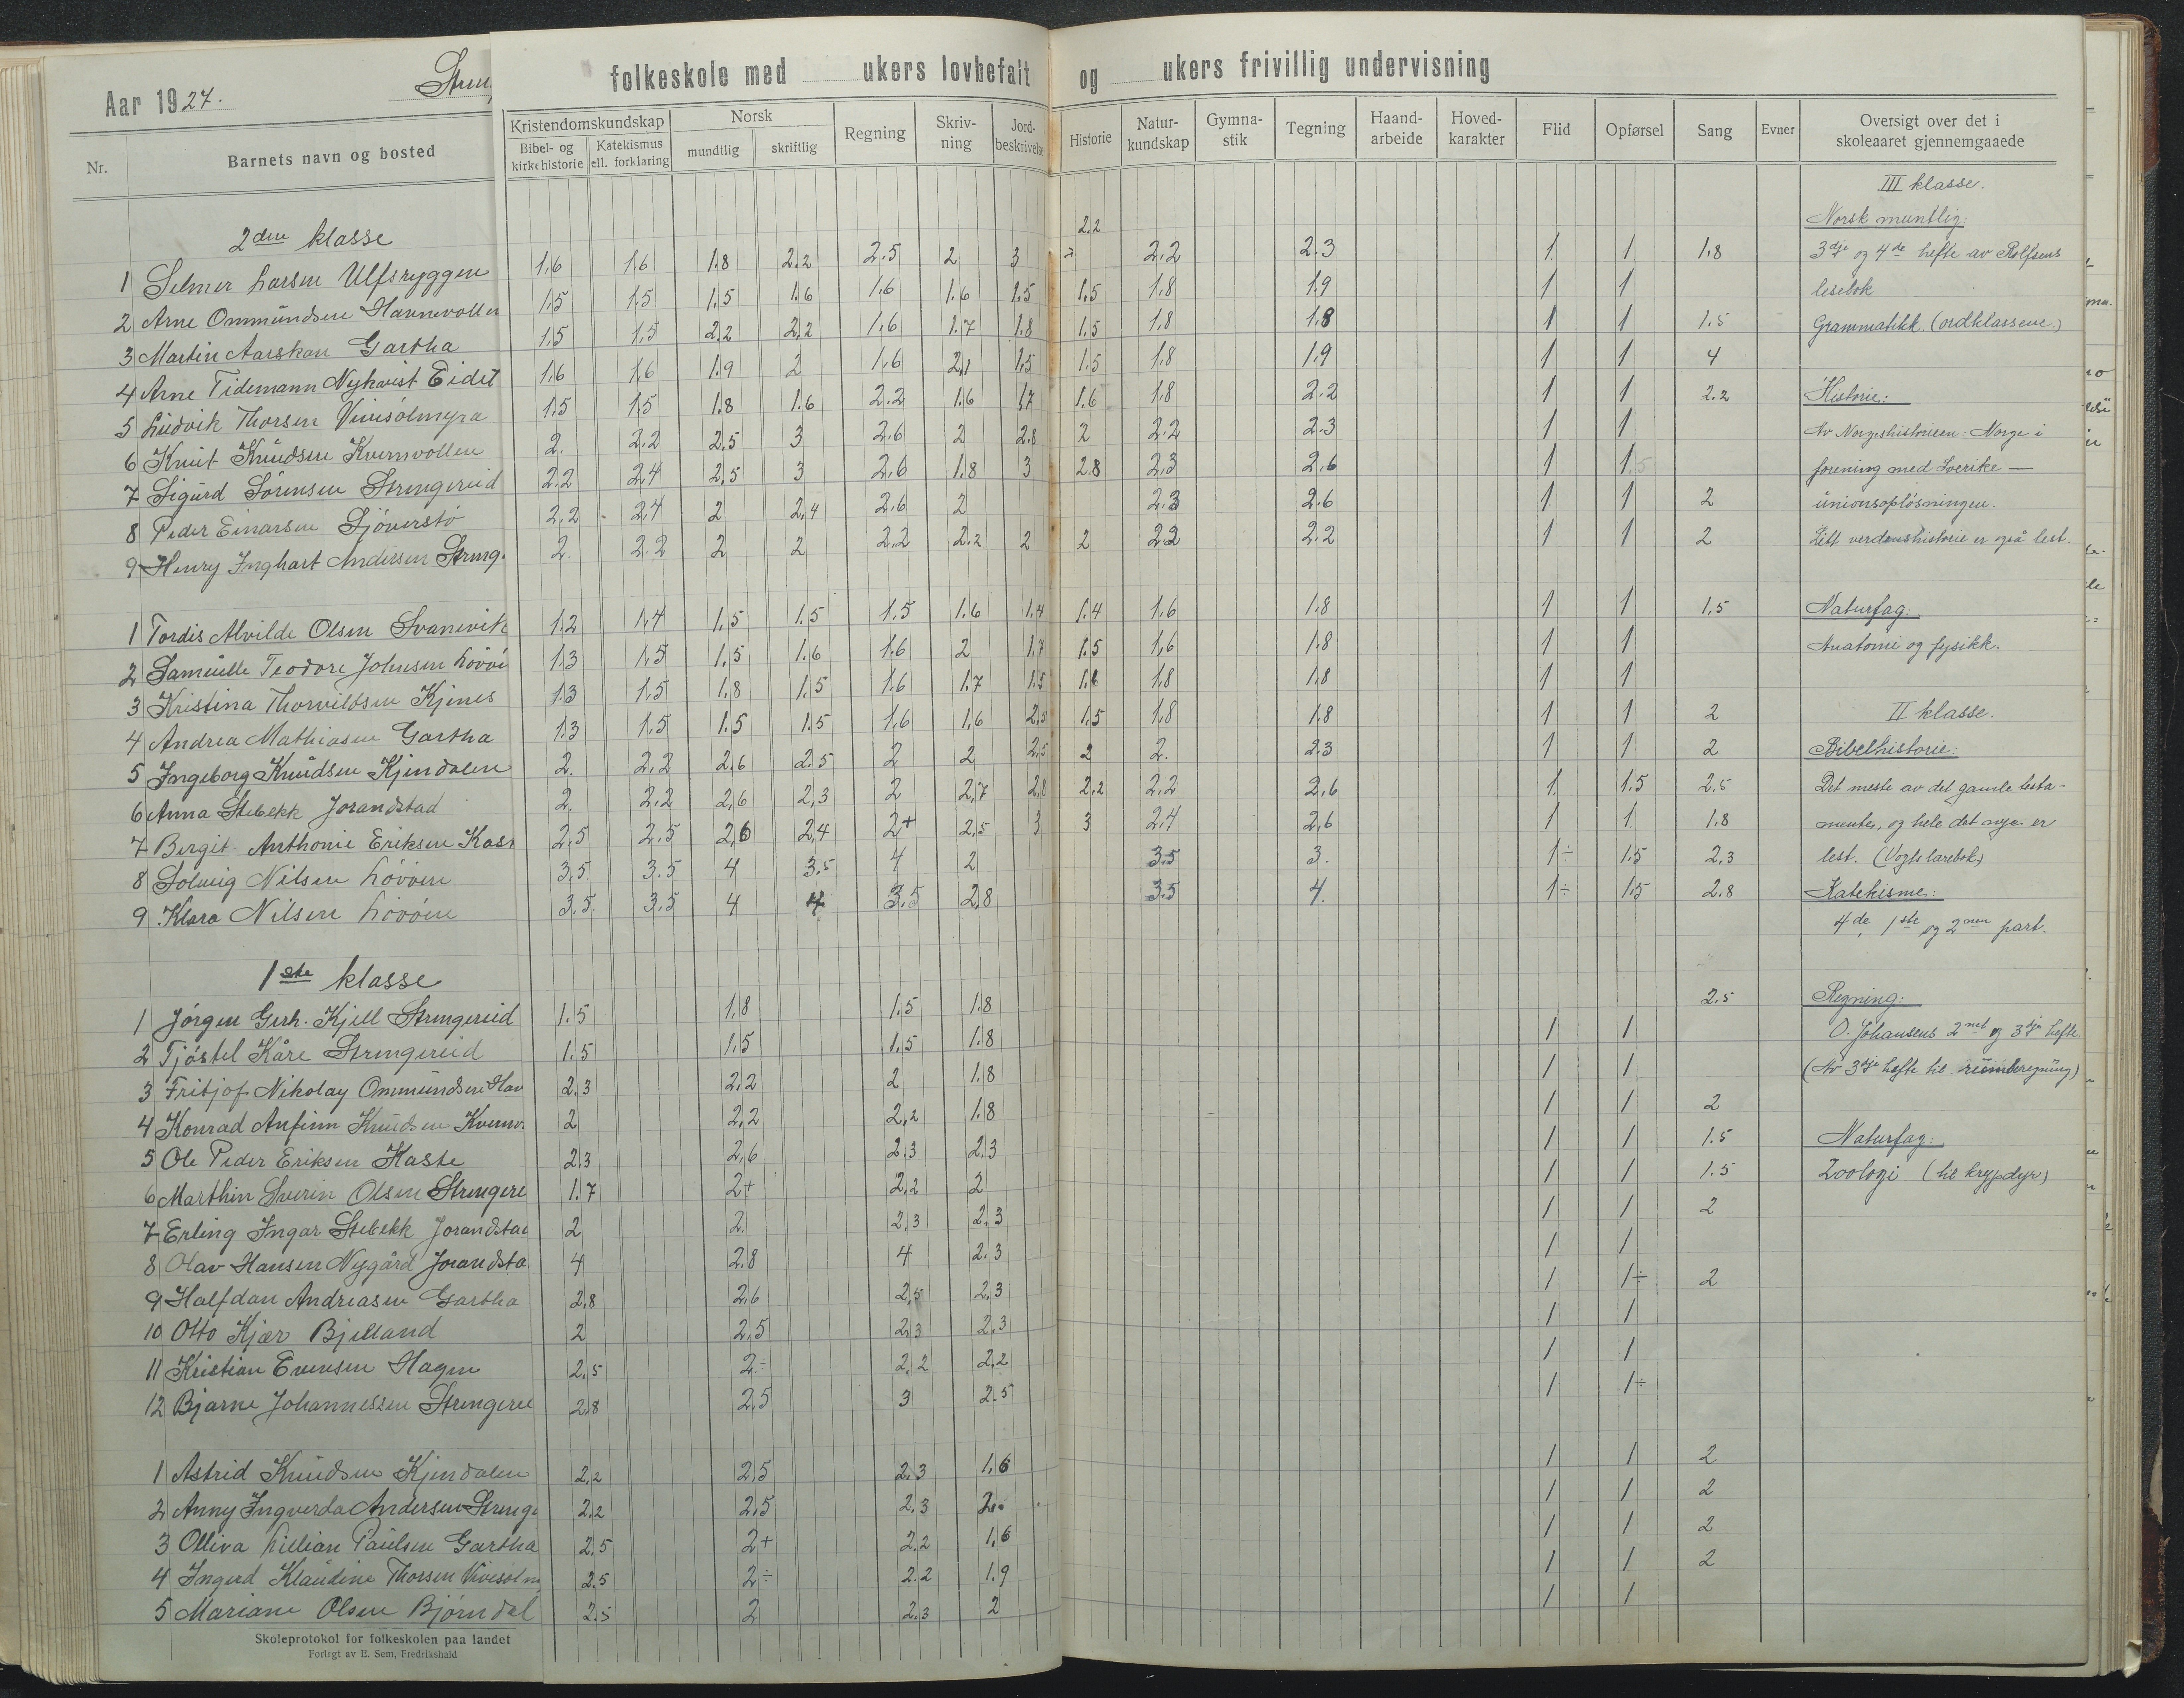 Aar 1927.
folkeskole med ukers lovbefalt og ukers frivillig undervisning
Nr. | Barnets navn og bosted | Kristendomskundskap: Bibel- og kirkehistorie | Katekismus ell. forklaring | Norsk: mundtlig | skriftlig | Regning | Skriv-ning | Jord-beskrivelse | Historie | Natur-kundskap | Gymna-stik | Tegning | Haand-arbeide | Hoved-karakter | Flid | Opførsel | Sang | Evner | Oversigt over det i skoleaaret gjennemgaaede
2den klasse
1 Selmer Larsen Ulfsryggen 1.6 1.6 1.8 2.2 2.5 2 3 2.2 2.2 2.3 1 1 1.8
2 Arne Ommundsen Hannevollen 1.5 1.5 1.5 1.6 1.6 1.6 1.5 1.5 1.8 1.9 1 1
3 Martin Aarskau Gartha 1.5 1.5 2.2 2.2 1.6 1.7 1.8 1.5 1.8 1.8 1 1 1.5
4 Arne Tidemann Nykvist Eidet 1.6 1.6 1.9 2 1.6 2.1 1.5 1.5 1.8 1.9 1 1 4
5 Ludvik Thorsen Vivesølmyra 1.5 1.5 1.8 1.6 2.2 1.6 1.7 1.6 1.8 2.2 1 1 2.2
6 Knut Knudsen Kvernvollen 2. 2.2 2.5 3 2.6 2 2.8 2 2.2 2.3 1 1
7 Sigurd Sørensen Strengereid 2.2 2.4 2.5 3 2.6 1.8 3 2.8 2.3 2.6 1 1.5
8 Peder Einarsen Sjøverstø 2.2 2.4 2 2.4 2.6 2 2.3 2.6 1 1 2
9 Henry Inghart Andersen Streng. 2. 2.2 2 2 2.2 2.2 2 2 2.2 2.2 1 1 2
1 Tordis Alvilde Olsen Svanevik 1.2 1.4 1.5 1.5 1.5 1.6 1.4 1.4 1.6 1.8 1 1 1.5
2 Samuelle Teodore Johnsen Løvøen 1.3 1.5 1.5 1.6 1.6 2 1.7 1.5 1.6 1.8 1 1
3 Kristina Thorvildsen Kjenes 1.3 1.5 1.8 1.5 1.6 1.7 1.5 1.6 1.8 1.8 1 1
4 Andrea Mathiasen Gartha 1.3 1.5 1.5 1.5 1.6 1.6 2.5 1.5 1.8 1.8 1 1 2
5 Ingeborg Knudsen Kjendalen 2. 2.2 2.6 2.5 2 2 2.5 2 2. 2.3 1 1 2
6 Anna Stebekk Jorandstad 2. 2.2 2.6 2.3 2 2.7 2.8 2.2 2.2 2.6 1. 1.5 2.5
7 Bergit Anthonie Eriksen Kast 2.5 2.5 2.6 2.4 2+ 2.5 3 3 2.4 2.6 1 1 1.8
8 Solveig Nilsen Løvøen 3.5 3.5 4 3.5 4 2 3.5 3. 1÷ 1.5 2.3
9 Klara Nilsen Løvøen 3.5. 3.5 4 4 3.5 2.8 3.5 4. 1÷ 1.5 2.8
1ste klasse
1 Jørgen Gerh. Kjell Strengereid 1.5 1.8 1.5 1.8 2.5
2 Tjøstel Kåre Strengereid 1.5 1.5 1.5 1.8 1 1
3 Fritjof Nikolay Ommundsen Hav 2.3 2.2 2 1.8 1 1
4 Konrad Anfinn Knudsen Kvernv. 2 2.2 2.2 1.8 1 1 2
5 Ole Peder Eriksen Kaste 2.3 2.6 2.3 2.3 1 1 1.5
6 Marthin Sverin Olsen Strengere 1.7 2+ 2.2 2 1 1 1.5
7 Erling Ingar Stebekk Jorandstad 2 2. 2.3 2.3 1 1 2
8 Olav Hansen Nygård Jorandsta 4 2.8 4 2.3 1 1
9 Halfdan Andreasen Gartha 2.8 2.6 2.5 2.3 1 1÷ 2
10 Otto Kjær Bjelland 2 2.5 2.3 2.3 1 1
11 Kristian Evensen Hagen 2.5 2÷ 2.2 2.2 1 1
12 Bjarne Johannessen Strengerei 2.8 2.5 3 2.5 1 1÷
1 Astrid Knudsen Kjendalen 2.2 2.5 2.3 1.6 1 1 2
2 Anny Ingverda Andersen Strenge 2.2 2.5 2.3 2. 1 1 2
3 Olliva Lillian Paulsen Gartha 2.5 2+ 2.2 1.6 1 1 2
4 Ingerd Klaudine Thorsen Vivesølm 2.5 2÷ 2.2 1.9 1 1 2
5 Mariane Olsen Bjørndal 2.5 2 2.3 2 1 1
Skoleprotokol for folkeskolen paa landet
Forlagt av E. Sem, Fredrikshald
III klasse.
Norsk muntlig:
3dje og 4de hefte av Rolfsens
lesebok
Grammatikk. (ordklassene.)
Historie:
Av Norgeshistorien: Norge i
forening med Sverike —
unionsopløsningen.
Litt verdenshistorie er også lest.
Naturfag:
Anatomi og fysikk.
II klasse.
Bibelhistorie:
Det meste av det gamle testa-
mente, og hele det nye er
lest. (Vogts lærebok)
Katekisme:
4de, 1ste og 2nen part.
Regning:
O. Johansens 2net og 3dje hefte.
(Av 3dje hefte til rumberegning)
Naturfag:
Zoologi (til krypdyr)